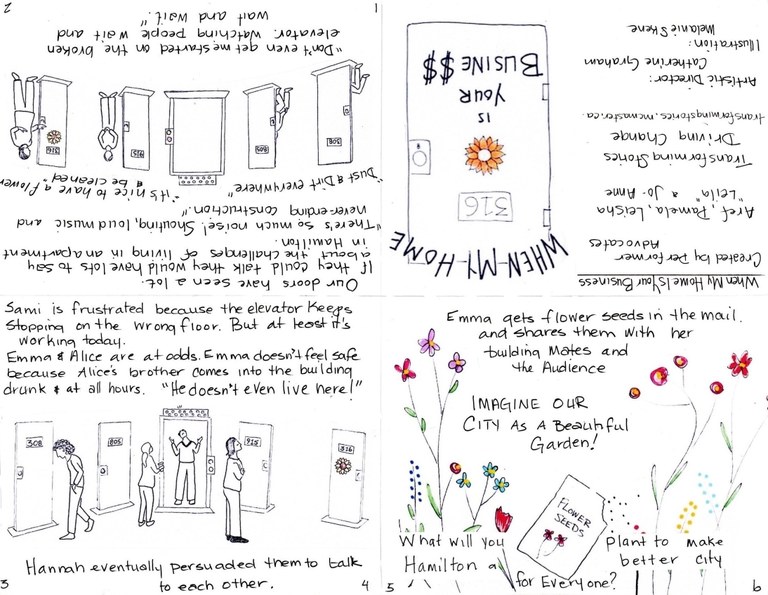 When My Home Is Your Business
Created by Performer
Advocates
Aref, Pamela, Leisha
"Leila" & Jo-Anne
Transforming Stories
Driving Change
transformingstories.mcmaster.ca.
Artistic Director:
Catherine Graham
Illustration:
Melanie Skene
WHEN MY HOME
316
IS
YOUR
BUSINE$$
1
Our doors have seen a lot.
If they could talk they would have lots to say
about the challenges of living in an apartment
in Hamilton.
"There's so much noise! Shouting, loud music and
never-ending construction."
"Dust & Dirt everywhere"
"it's nice to have a flower
& be cleaned"
308
805
915
"Don't even get me started on the broken
elevator. Watching people wait and
wait and wait."
2
Sami is frustrated because the elevator keeps
stopping on the wrong floor. But at least it's
working today.
Emma & Alice are at odds. Emma doesn't feel safe
because Alice's brother comes into the building
drunk & at all hours. "He doesn't even live here!"
308
805
915
316
Hannah eventually persuaded them to talk
to each other.
3
4
Emma gets flower seeds in the mail.
and shares them with her
building mates and
the Audience
IMAGINE OUR
CITY AS A Beautiful
Garden!
FLOWER
SEEDS
What will you Plant to make
Hamilton a better city
for Everyone?
5
6